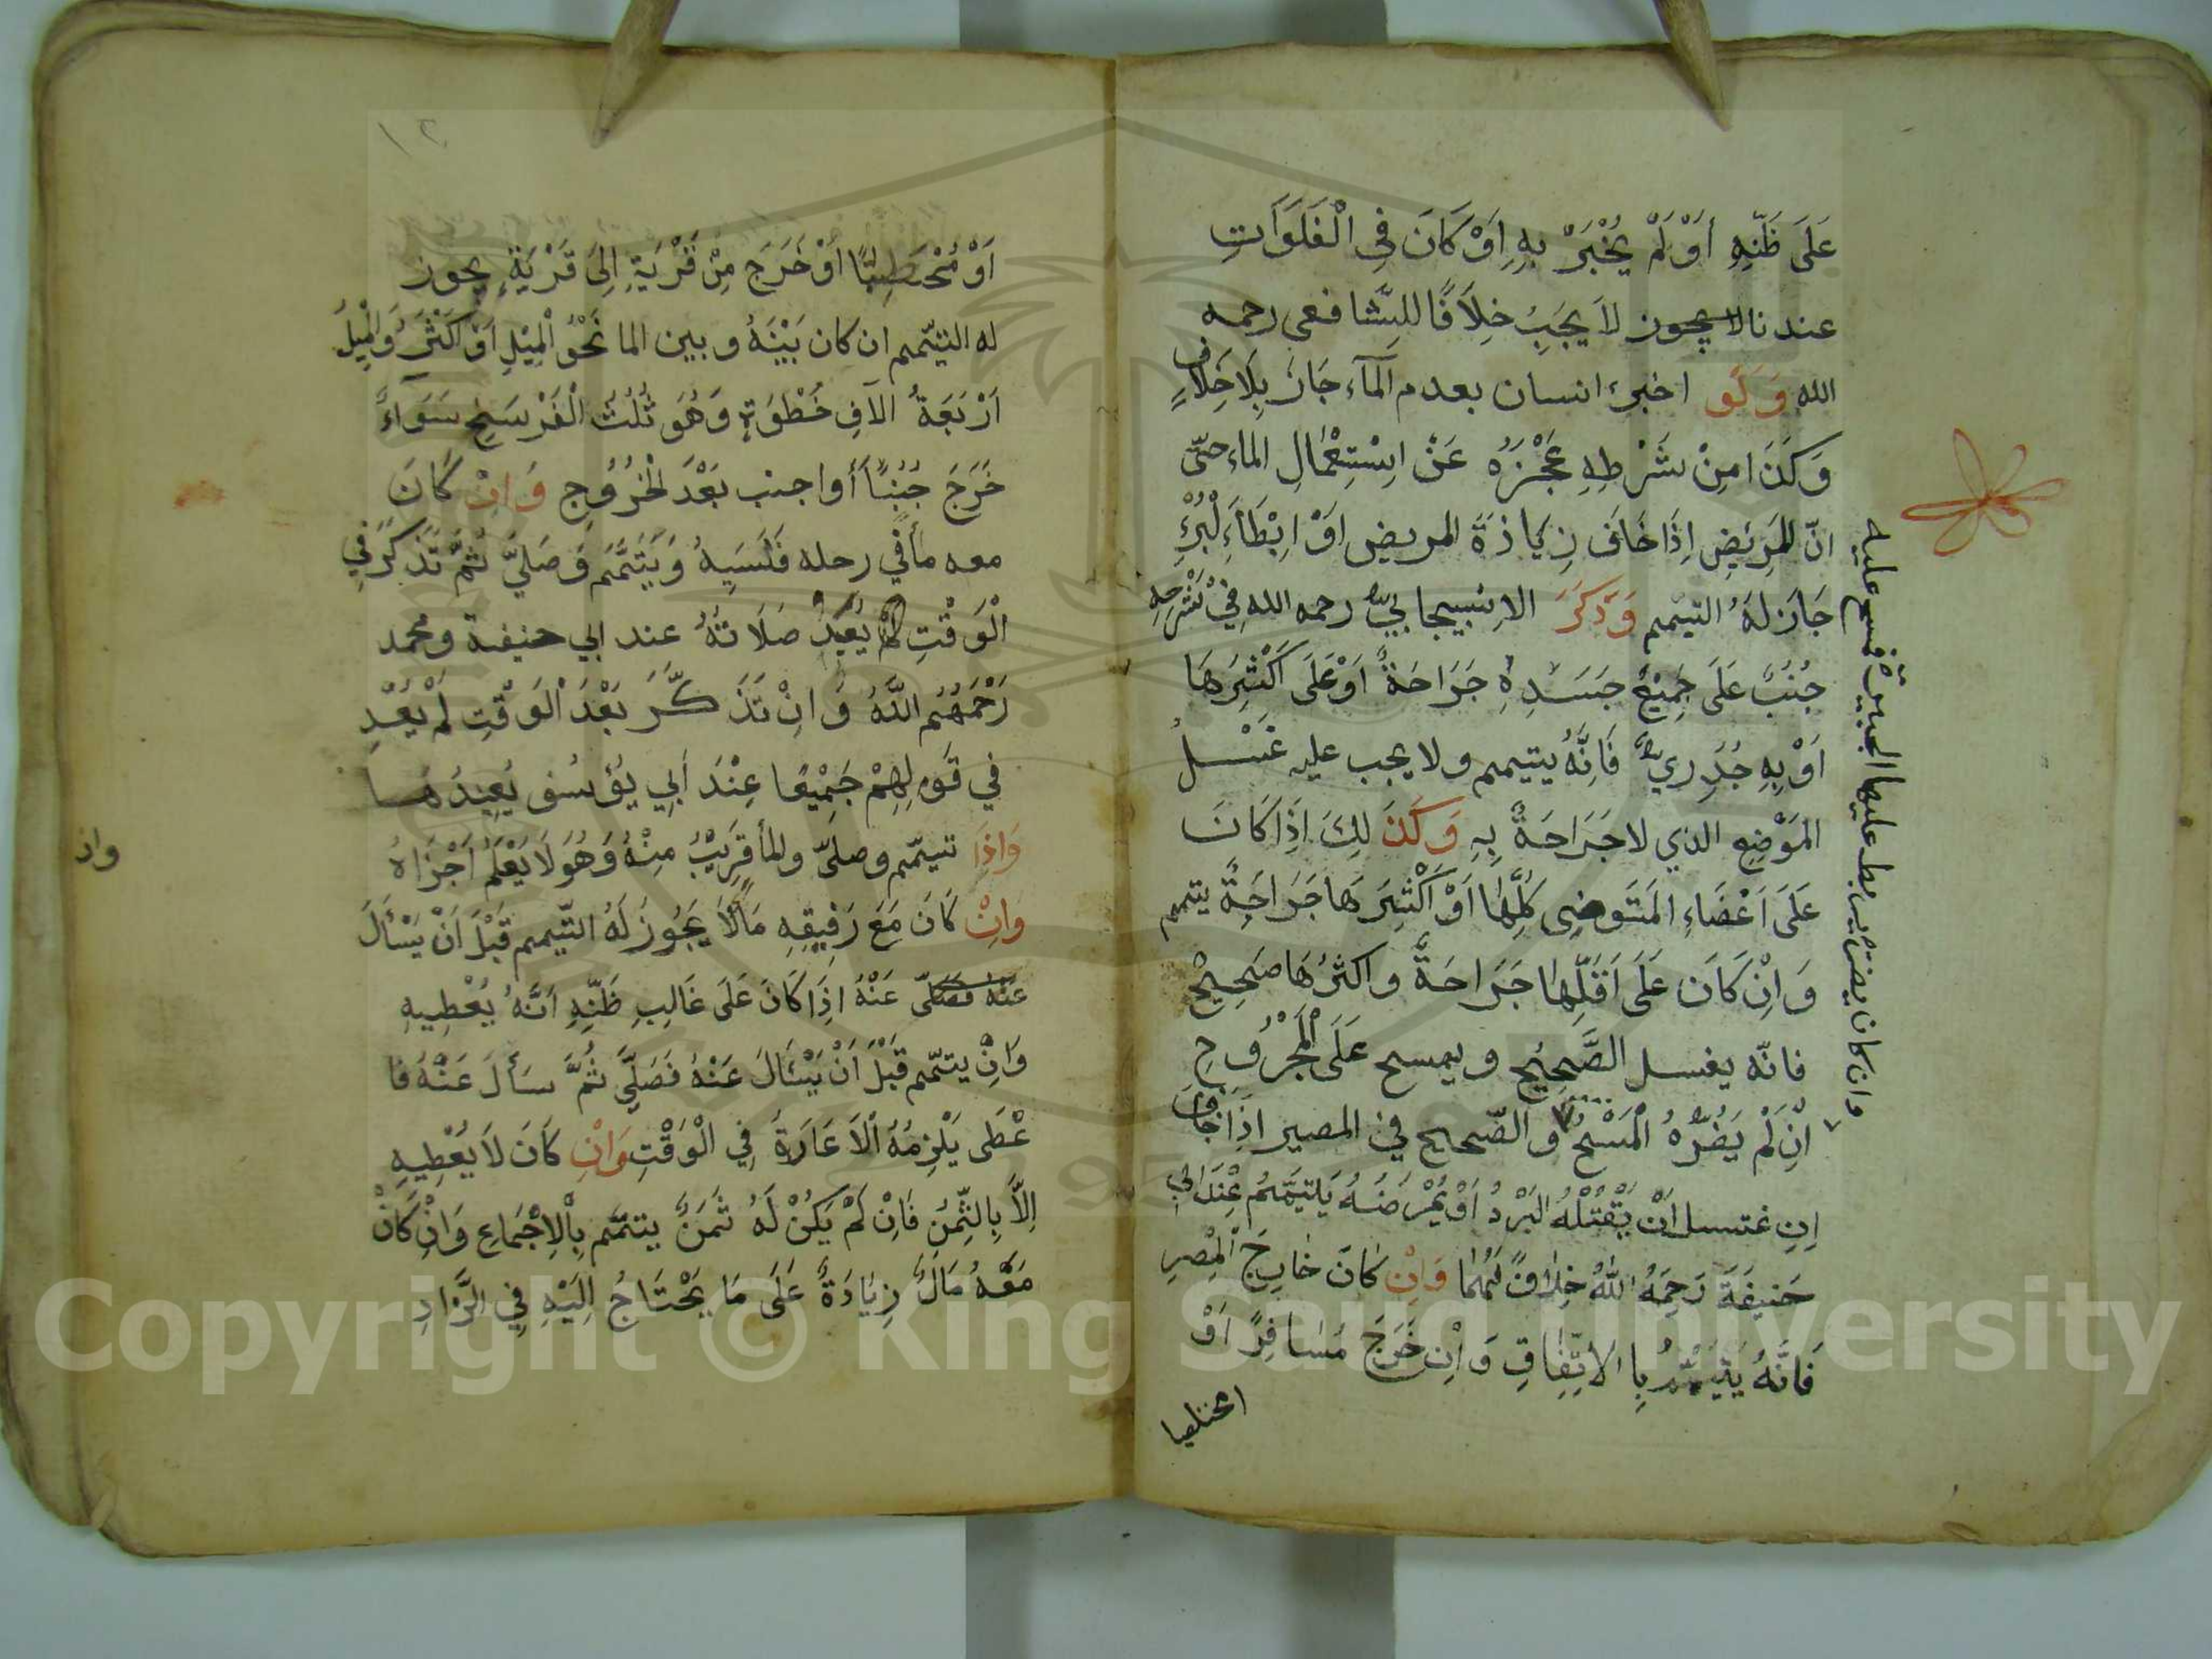 عَلَى ظَنِّهِ أَوْ لَمْ يُخْبَرْ بِهِ اَوْ كَانَ فِي الْفَلَوَاتِ
عندنا لا يجوز لاَ يَجِبُ خِلَافًا لِلشَّافعى رحمه
الله وَلَو اخبرء انسان بعدم اَلمآء جَازَ بِلَا خِلَافٍ
وَكَذَا مِنْ شَرْطِهِ عَجْزُهُ عَنْ اِسْتِعْمَالِ الماء حتّى
انّ المَرِيْضِ اِذَا خَافَ زِيَادَةَ المريض اَوْ اِبْطَاءَ لْبُرْءِ
جَازَ لَهُ التيّمم وَذَكَرَ الاِسْبيجابيّ رحمه الله فِيْ شَرْحِهِ
جُنُبٌ عَلَى جَمِيْعِ جَسَدِهِ جَرَاحَةٌ اَوْ عَلَى اَكْثَرِهَا
اَوْ بِهِ جُدَرِيٌّ فَاِنَّهُ يتيمم ولا يجب عليه غَسْلُ
المَوْضِعِ الذي لا جَرَاحَةٌ بِهِ وَكَذَلِكَ اِذَا كَانَ
عَلَى اَعْضَاءِ المَتَوضِى كُلِّهَا اَوْ اَكْثَرِهَا جَرَاحَةٌ يتمم
وَاِنْ كَانَ عَلَى اَقَلِّهَا جَرَاحَةٌ واكثرُهَا صَحِيْحٌ
فانّه يغسل الصَّحِيْحِ ويمسح عَلَى الْمَجْرُوحِ
اِنْ لَمْ يَضُرُّهُ الْمَسْحُ وَ الصّحيح في المصير اِذَا خَافَ
اِنِ غتسل اَنْ يَقْتُلَهُ البَرْدُ اَوْ يُمْرِضَهُ يَتَيَمَّمُ عِنْدَ ابي
حَنيفَةَ رَحِمَهُ اللهُ خِلَافً لَهُمَا وَاِنْ كَانَ خَارِجَ الْمِصْرِ
فَاِنَّهُ يَتَيَمَّمُ بِا الاتِّفَاقِ وَاِنْ خَرَجَ مُسَافِرًا اَوْ
وان كان يضرّ يربط عليها الجبيرة فمسح عليه
اَوْ مُحْتَطِبًا اَوْ خَرَجَ مِنْ قَرْيَةٍ اِلَى قَرْيَةٍ يجوز
له التيّمم ان كان بَيْنَهُ وبين الما نَحْوُ الْمِيْلِ اَوْ اَكْثَرَ وَالْمِيلُ
اَرْبَعَةُ الآفِ خُطْوَةٍ وَهُوَ ثُلُثُ الْفَرْسَخِ سَوَاءٌ
خَرَجَ جُنُبًا أَو اجنب بَعْدَ الْخُرُوجِ وَاِنْ كَانَ
معه مأفي رحله فَنَسِيَهُ وَيَتَمَّمَ وَصَلىَّ ثُمَّ تَذَكَّرَ فِي
الْوَقْتِ لَمْ يُعِدْ صَلَاتَهُ عند ابي حنيفة ومحمد
رَحْمَهُمُ اللَّهُ وَاِنْ تَذَكَّرَ بَعْدَ الْوَقْتِ لَمْ يُعْدِ
في قَوْلِهِمْ جَمِيْعًا عِنْدَ اَبِي يُوْسُفَ يُعِيْدُهَا
وَاِذَا تيمّم وصلىّ والمأ قَرِيْبٌ مِنْهُ وَهُوَ لَا يَعْلَمُ اَجْزَاهُ
وَاِنْ كَانَ مَعَ رَفِيْقِهِ مَاً لاَ يَجُوزَ لَهُ التّيمم قَبْلَ اَنْ يَسْأَلَ
عَنْهُ اِذَا كَانَ عَلَى غَالِبِ ظَنِّهِ اَنَّهُ يُعْطِيهِ
وَاِنْ يتمّم قَبْلَ اَنْ يَسْئَالَ عَنْهُ فَصَلَّى ثُمَّ سَأَلَ عَنْهُ فا
عْطَى يَلْزِمُهُ اْلاَعَادَةُ فِي الْوَقْتِ وَاِنْ كَانَ لاَ يُعْطِيهِ
اِلاَّ بِالثَّمَنِ فَاِنْ لَمْ يَكُنْ لَهُ ثَمَنٌ يتمّم بِاْلاِجْمَاعِ وَاِنْ كَانْ
مَعَهُ مَالٌ زِيَادَةٌ عَلَى مَا يَحْتَاجُ اِلَيْهِ فِي الزَّادِ
وان
١٢
Copyright © King Saud University